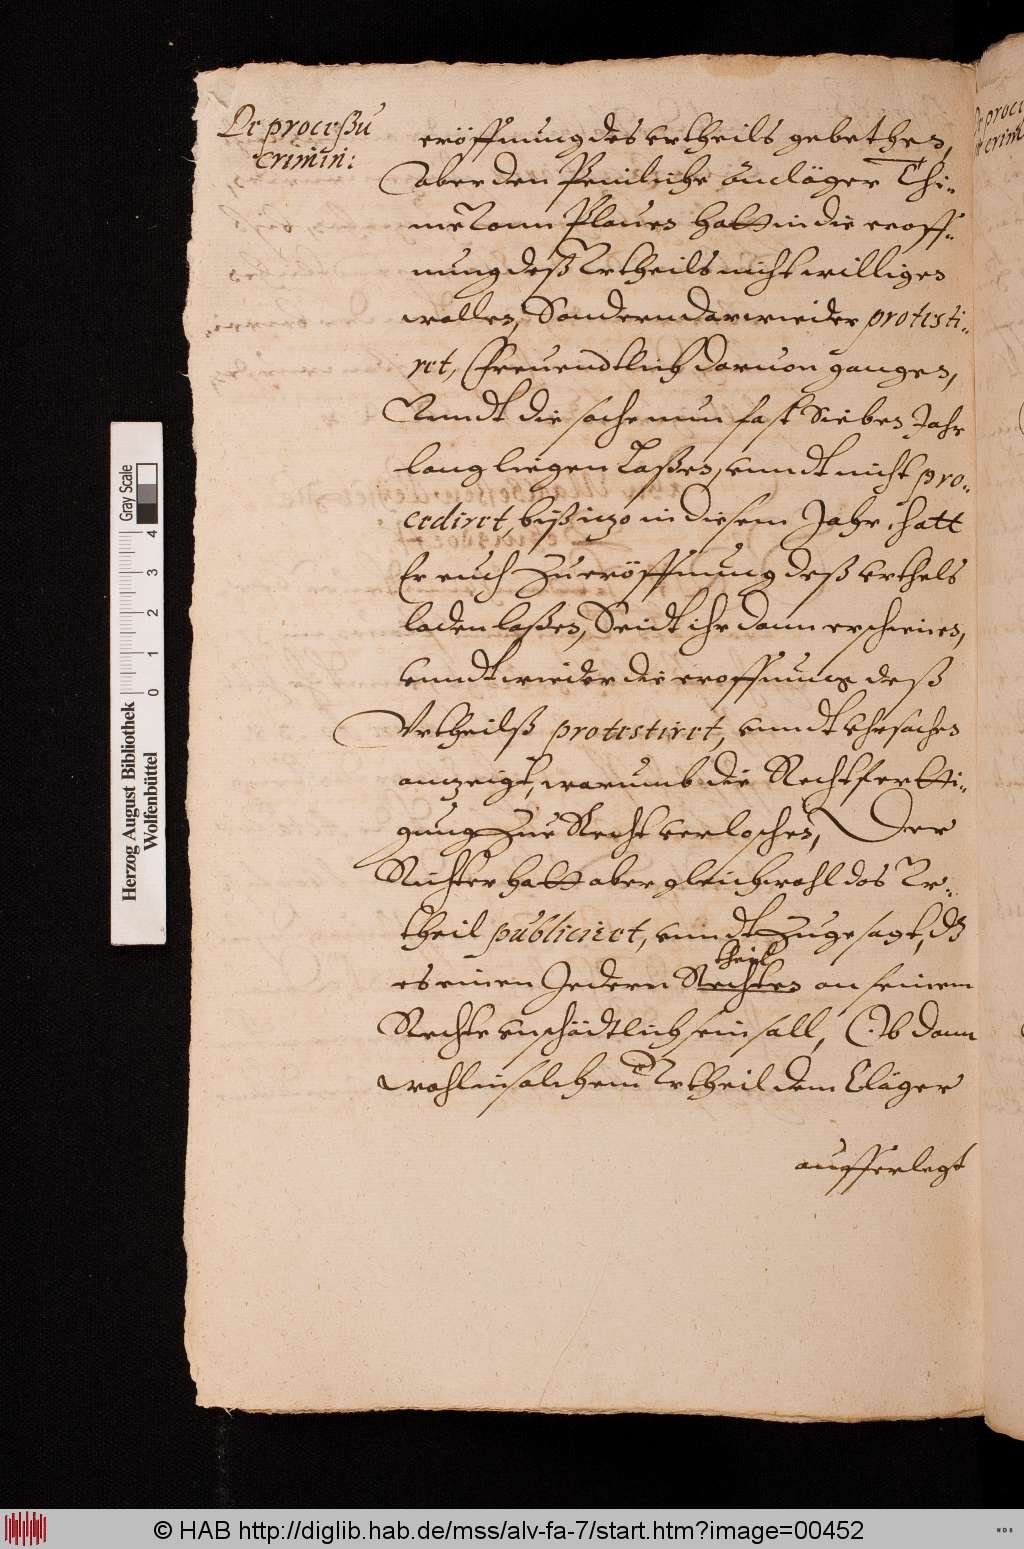 De proceßu
crimin:
eröffnung des vrtheils gebethen,
aber den Peinliche ancläger Thi-
me Vonn Plauen hatt in die eroff-
nung deß Vrtheils nicht willigen
wollen, Sondern darwieder protesti-
ret, Freuendtlich daruon gangen,
Vnndt die sache nun fast Sieben Jahr
lang liegen Laßen, vnndt nicht pro-
cediret, biß itzo in diesem Jahr, hatt
Er euch zu eröffnung deß vrthels
laden laßen, Seidt ihr dann erschienen,
vnndt wieder die eroffnung deß
Vrtheilß protestiret, vnndt vhrsachen
anzeigt, warumb die Rechtfertti-
gung zue Recht verloschen, Der
Richter hatt aber gleichwohl das Vr-
theil publiciret, vnndt zugesagt, dß
es einen Jedern Rechten an seinem
theil
Rechte vnschädtlich sein sall, Ob dann
wohl in solchem Vrtheil dem Cläger
aufferlegt
De proce
crimi
Herzog August Bibliothek
Wolfenbüttel
Gray Scale
0 1 2 3 4
© HAB http://diglib.hab.de/mss/alv-fa-7/start.htm?image=00452